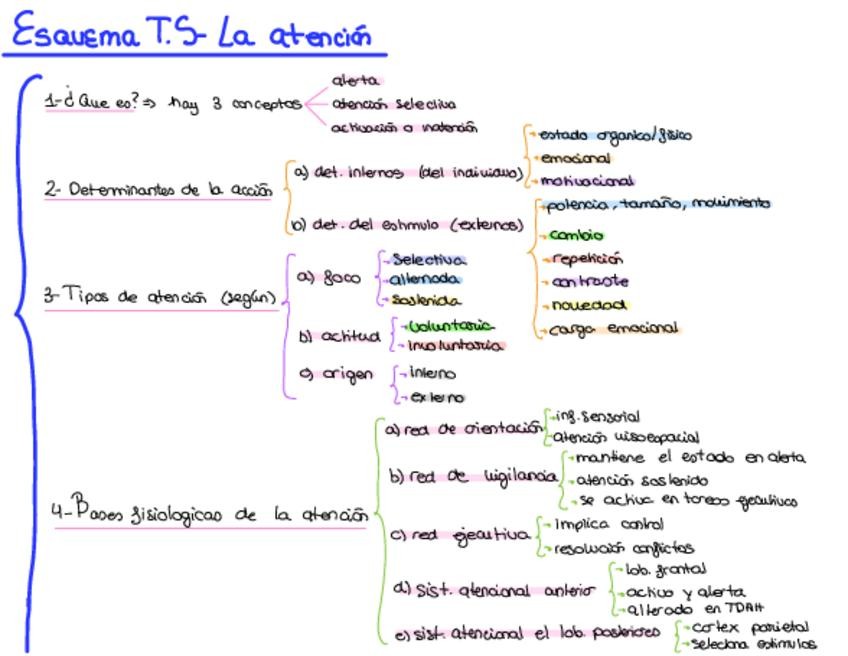 Esquema T.5- La atención
1-¿Que es? => hay 3 conceptos
alerta
atención selectiva
activación o inatención
2- Determinantes de la acción
a) det. internos (del individuo)
- estado organico/físico
- emocional
- motivacional
b) det. del estímulo (externos)
- potencia, tamaño, movimiento
- cambio
- repetición
- contraste
- novedad
- carga emocional
3-Tipos de atención (según)
a) foco
- Selectiva
- alternada
- Sostenida
b) actitud
- voluntaria
- involuntaria
c) origen
- interno
- externo
4-Bases fisiologicas de la atención
a) red de orientación
- inf. sensorial
- atención visoespacial
b) red de vigilancia
- mantiene el estado en alerta
- atención sostenido
- se activa en tareas ejecutivas
c) red ejecutiva
- implica control
- resolución conflictos
d) Sist. atencional anterior
- lob. frontal
- activo y alerta
- alterado en TDAH
e) sist. atencional el lob. posteriores
- cortex parietal
- selecciona estimulos